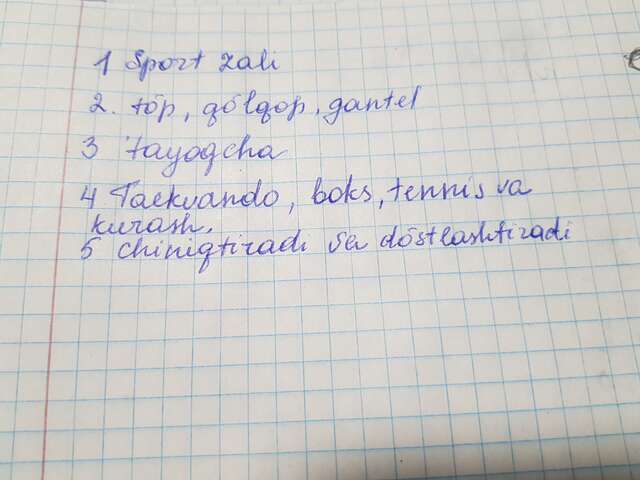 1 Sport zali
2. tóp, qólqop, gantel
3 tayoqcha
4 Taekvando, boks, tennis va
kurash.
5 chiniqtiradi va dóstlashtiradi